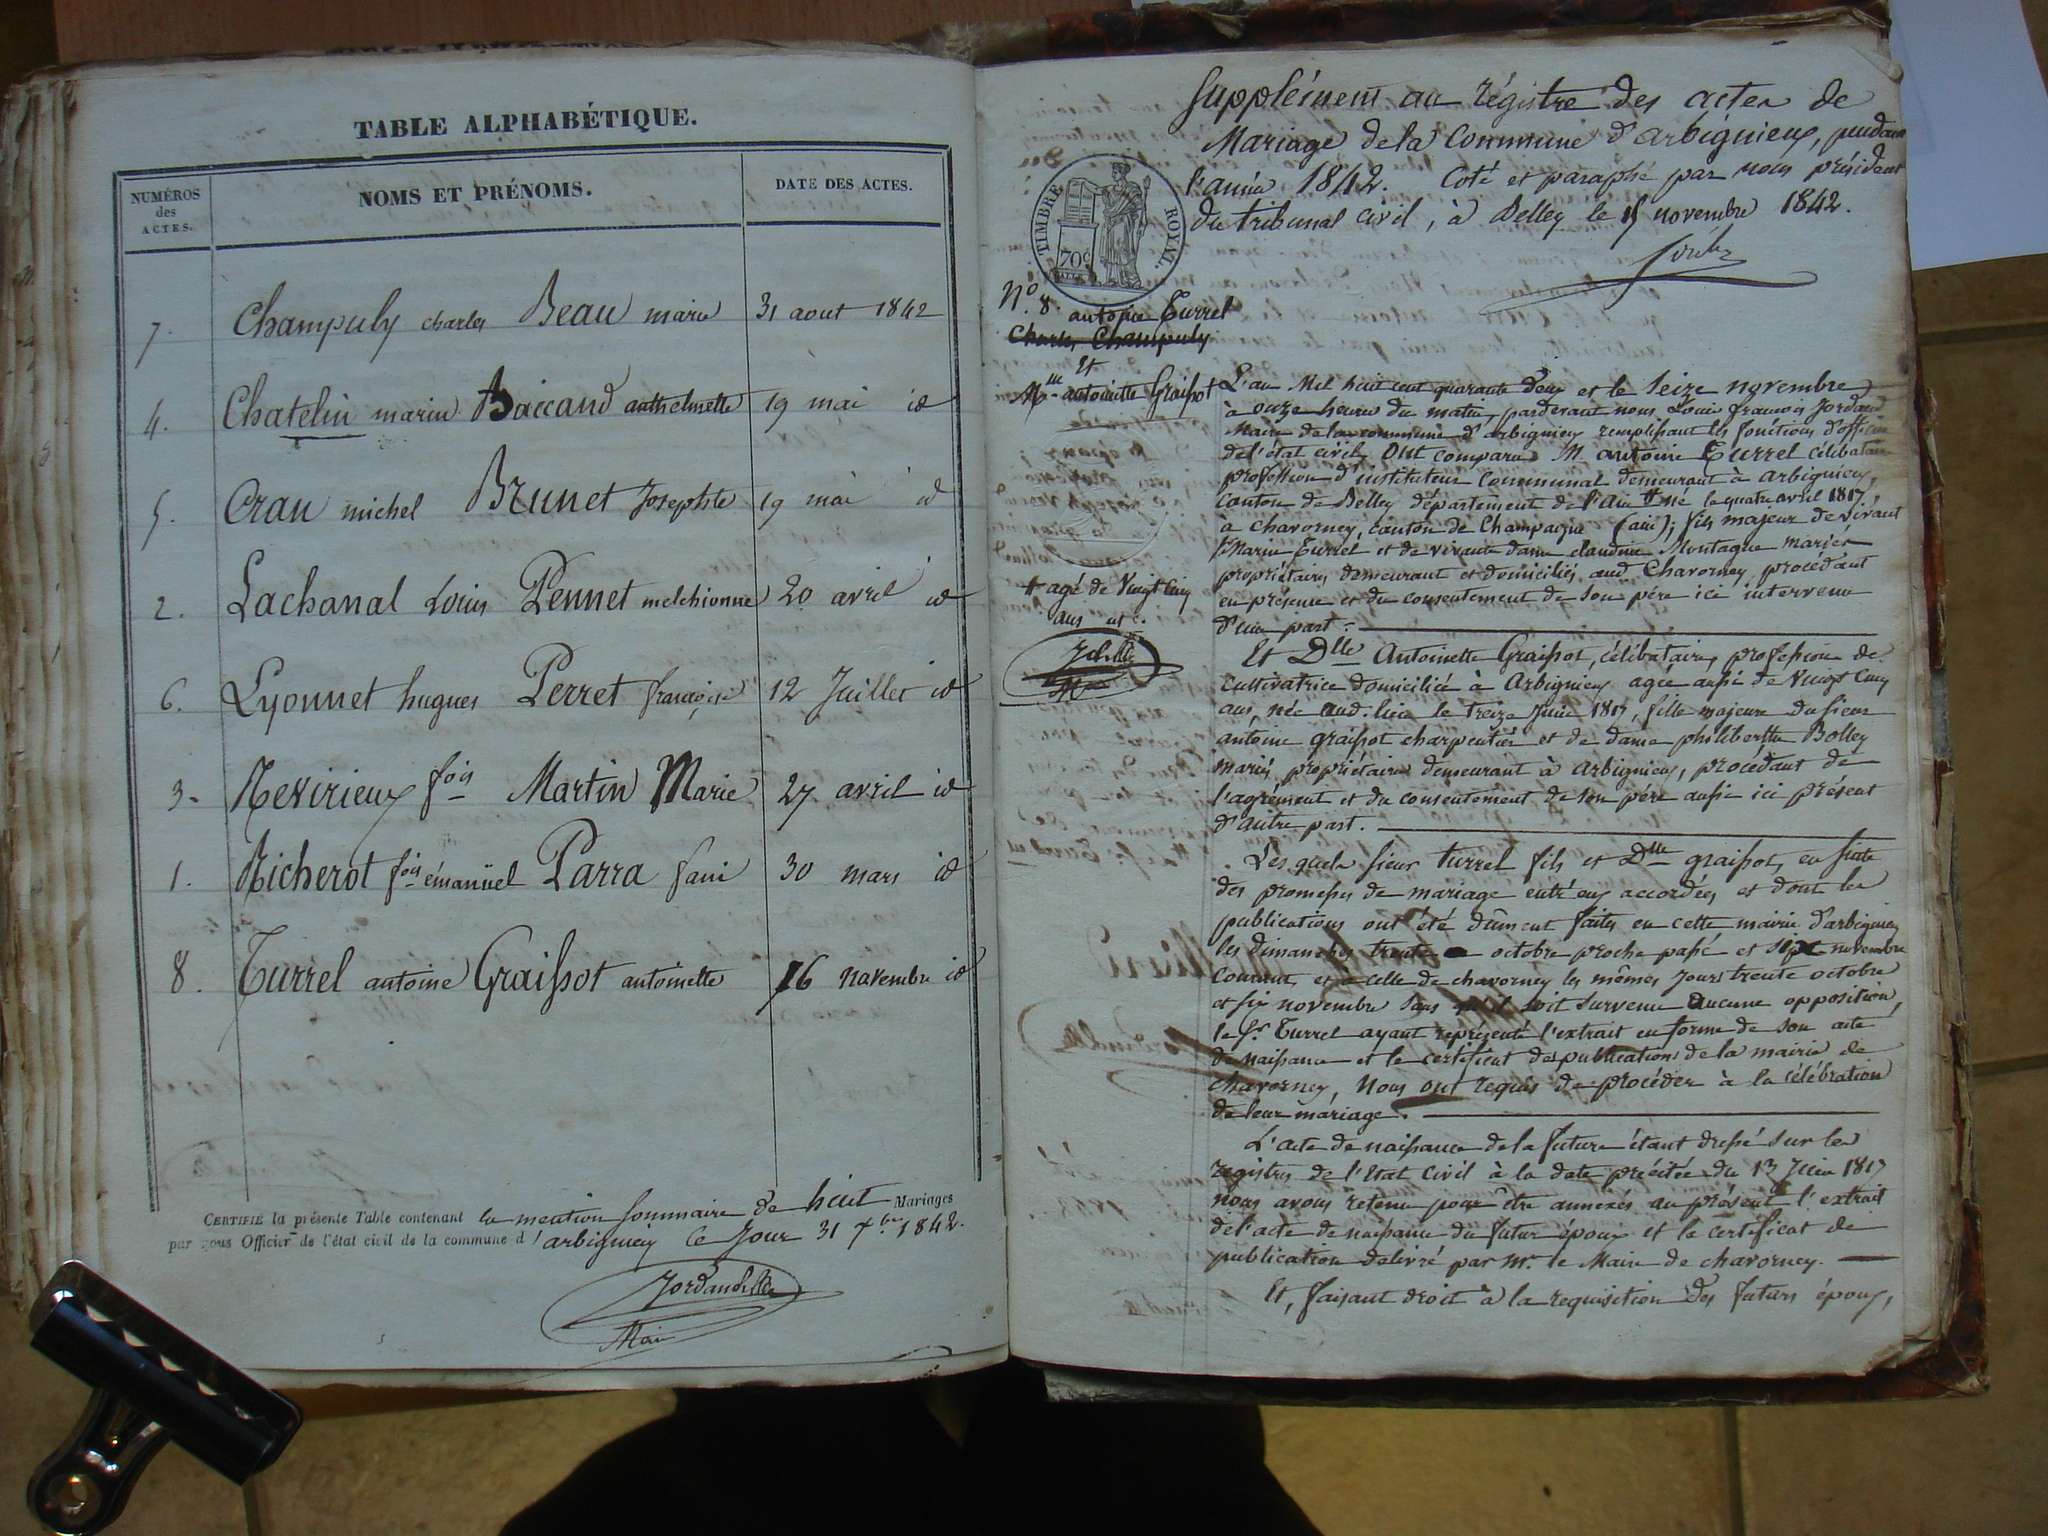 TABLE ALPHABÉTIQUE.
NUMÉROS des ACTES.
NOMS ET PRÉNOMS.
DATE DES ACTES.
7. Champuly charles Beau marie 31 aout 1842
4. Chatelin marin Baccand anthelmette 19 mai id
5. Cran michel Brunet Josephte 19 mai id
2. Lachanal Louis Pennet melchionne 20 avril id
6. Lyonnet hugues Perret françoise 12 Juillet id
3. Revirieux fois Martin Marie 27 avril id
1. Richerot fois émanuel Parra fani 30 mars id
8. Turrel antoine Graissot antoinette 16 novembre id
CERTIFIÉ la présente Table contenant la mention sommaire de huit Mariages
par nous Officier de l'état civil de la commune d'arbignieu ce Jour 31 xbre 1842.
Maire
Supplément au régistre des actes de
Mariage de la Commune d'arbignieux, pendant
l'année 1842. Coté et paraphé par nous président
du tribunal civil, à Belley le 15 novembre 1842.
TIMBRE ROYAL
70c
N° 8. antoine Turrel
Charles Champuly
Et
Mlle antoinette Graissot
L'an Mil huit cent quarante deux et le Seize novembre
à onze heures du matin, pardevant nous Louis françois Jordan
Maire de la commune d'arbignieux remplissant les fonctions d'officier
de l'état civil, Ont comparu M. antoine Turrel célibataire
profession d'instituteur Communal demeurant à arbignieux,
canton de Belley département de l'ain né le quatre avril 1817,
a chavorney, canton de Champagne (ain); fils majeur de vivant
Marin Turrel et de vivante dame claudine Montagne mariés
propriétaires demeurant et domiciliés aud Chavorney, procédant
en présence et du consentement de son père ici intervenu
d'une part.
agé de Vingt Cinq
ans
Et Dlle Antoinette Graissot, célibataire, profession de
cultivatrice domiciliée à Arbignieux agée aussi de Vingt Cinq
ans, née aud. lieu le treize Juin 1817, fille majeure du sieur
antoine graissot charpentier et de dame philiberthe Bolley
mariés propriétaires demeurant à arbignieux, procédant de
l'agrément et du consentement de son père aussi ici présent
d'autre part.
Lesquels sieur turrel fils et Dlle graissot, en suite
des promesses de mariage entr'eux accordées et dont les
publications ont été dûment faites en cette mairie d'arbignieux
les dimanches trente octobre proche passé et six novembre
Courant, et a celle de chavorney les mêmes Jours trente octobre
et six novembre sans qu'il soit survenu aucune opposition,
le Sr Turrel ayant représenté l'extrait en forme de son acte
de naissance et le certificat des publications de la mairie de
chavorney, Nous ont requis de procéder à la célébration
de leur mariage.
L'acte de naissance de la future étant dressé sur les
registres de l'Etat Civil à la date précitée du 13 Juin 1817
nous avons retenu pour être annexés au présent l'extrait
de l'acte de naissance du futur époux et le certificat de
publication délivré par Mr le Maire de chavorney.
Et, faisant droit à la requisition des futurs époux,